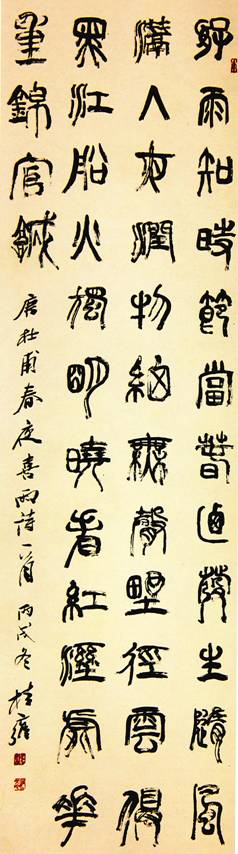 好雨知時節當春迺發生隨風
潛入夜潤物細無聲野徑雲俱
黑江船火獨明曉看紅溼處華
重錦官城
唐杜甫春夜喜雨詩一首 丙戌冬 桂雍